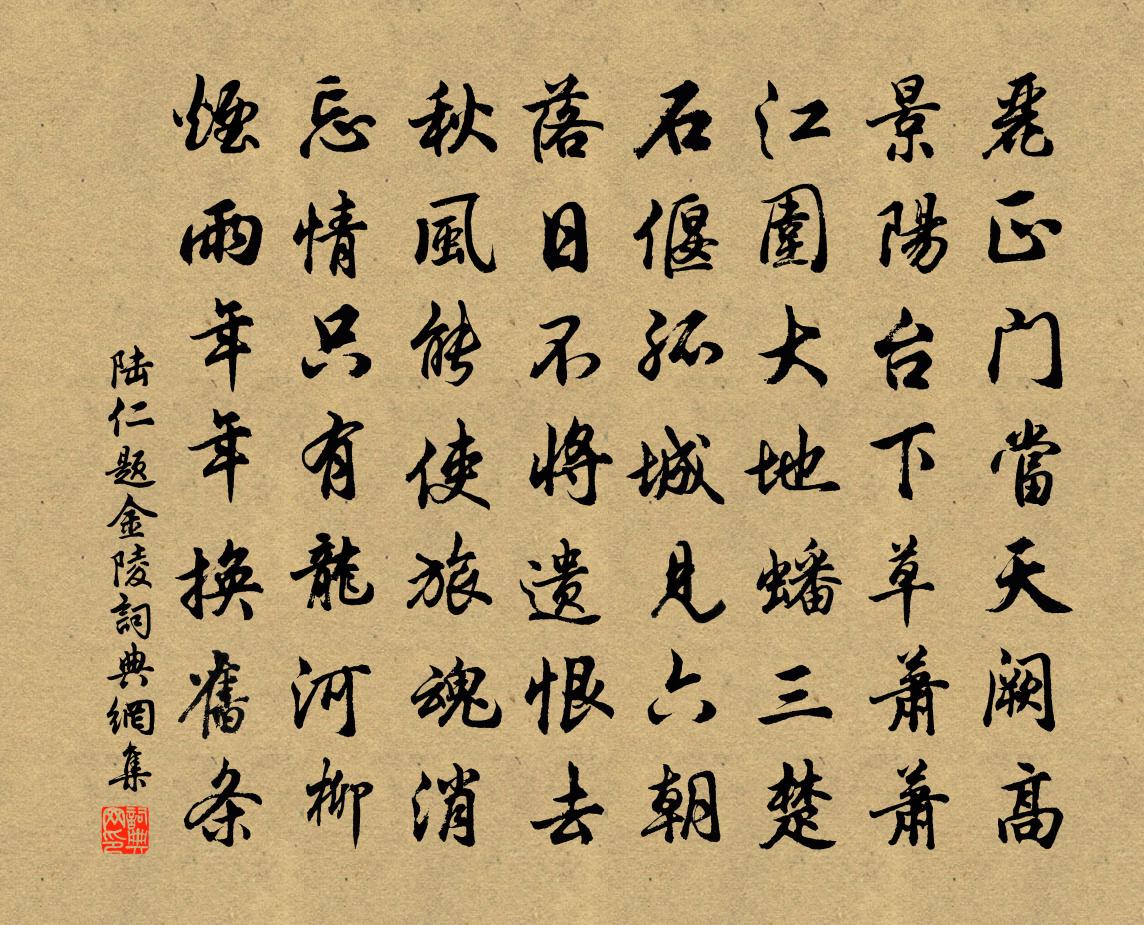 麗正门當天阙高
景陽台下草萧萧
江圍大地蟠三楚
石偃孤城見六朝
落日不将遗恨去
秋風能使旅魂消
忘情只有龍河柳
煙雨年年換舊条
陆仁题金陵詞典網集
詞典网印